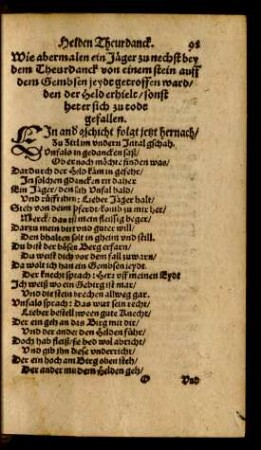 Helden Theurdanck. 98
Wie abermalen ein Jäger zu nechst bey
dem Theurdanck von einem stein auff
dem Gembsen jeydt getroffen ward/
den der Held erhielt/ sonst
heter sich zu todt
gefallen.
EIn and gschicht folgt jetzt hernach/
Zů Zirlim vndern Jntal gschah.
Vnfalo in gedancken saß/
Ob er noch möcht finden was/
Dardurch der Held käm in gefehr/
In solchen gdancken rit daher
Ein Jäger/ den sah Vnfal bald/
Vnd růfft ihm: Lieber Jäger halt/
Steh von deim Pferdt/ kumb zu mir her/
Merck/ das ist mein fleissig beger/
Darzu mein bitt vnd guter will/
Den bhalten solt in gheim vnd still.
Du bist der hohen Berg erfarn/
Du weist dich vor dem fall zuwarn/
Da wolt ich han ein Gembsen jeydt.
Der knecht sprach: Herr vff meinen Eydt
Ich weiß wo ein Gebirg ist mar/
Vnd die stein brechen allweg gar.
Vnfalo sprach: Das wurt sein recht/
Lieber bestell zween gute Knecht/
Der ein geh an das Birg mit dir/
Vnd der ander den Helden führ/
Doch hab fleiß/ sie hed wol abricht/
Vnd gib ihn diese vnderricht/
Der ein hoch am Birg oben steh/
Der ander mit dem Helden geh/
O Vnd